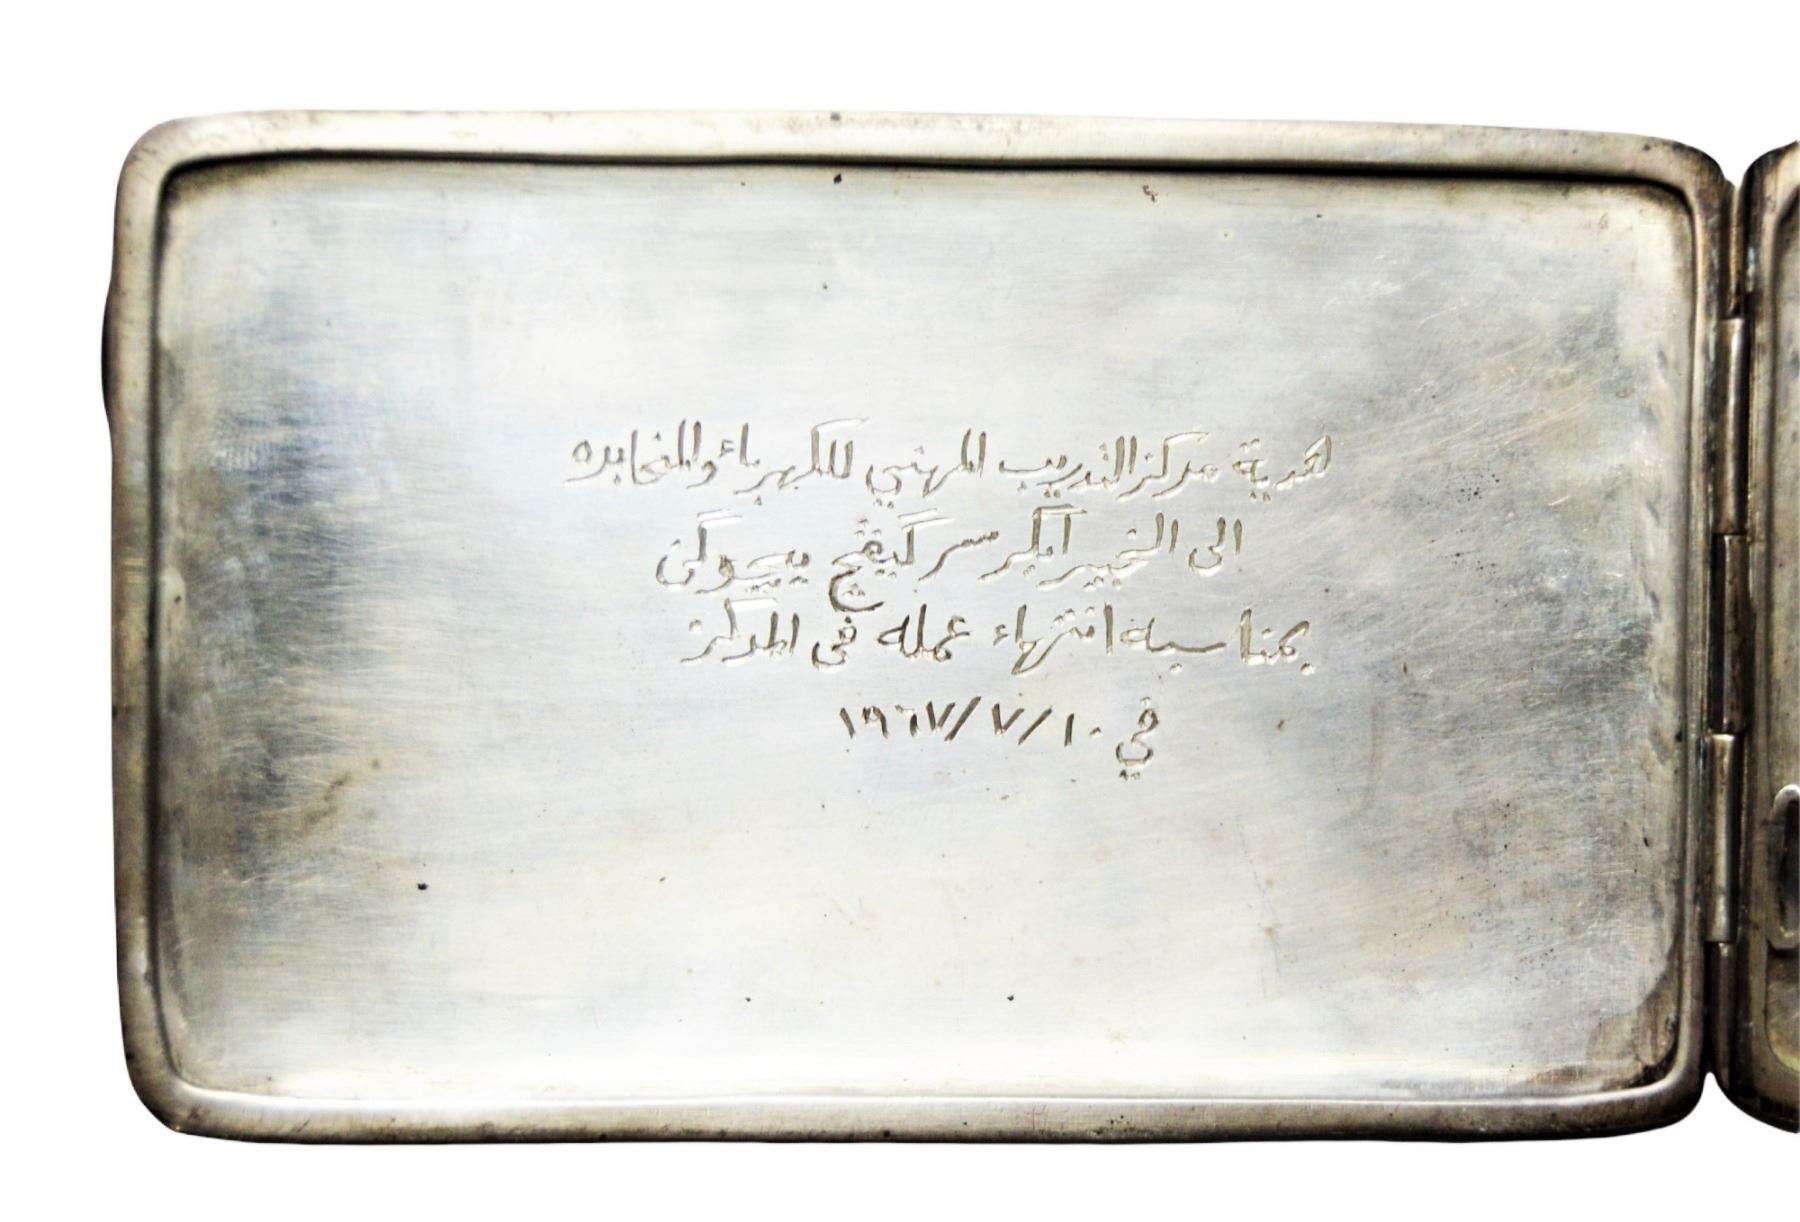 هدية مركز التدريب المهني للكهرباء والمخابره
الى الخبير ايگر سرگيفچ پيچوگن
بمناسبة انتهاء عمله في المركز
في ١٩٦٧/٧/١٠